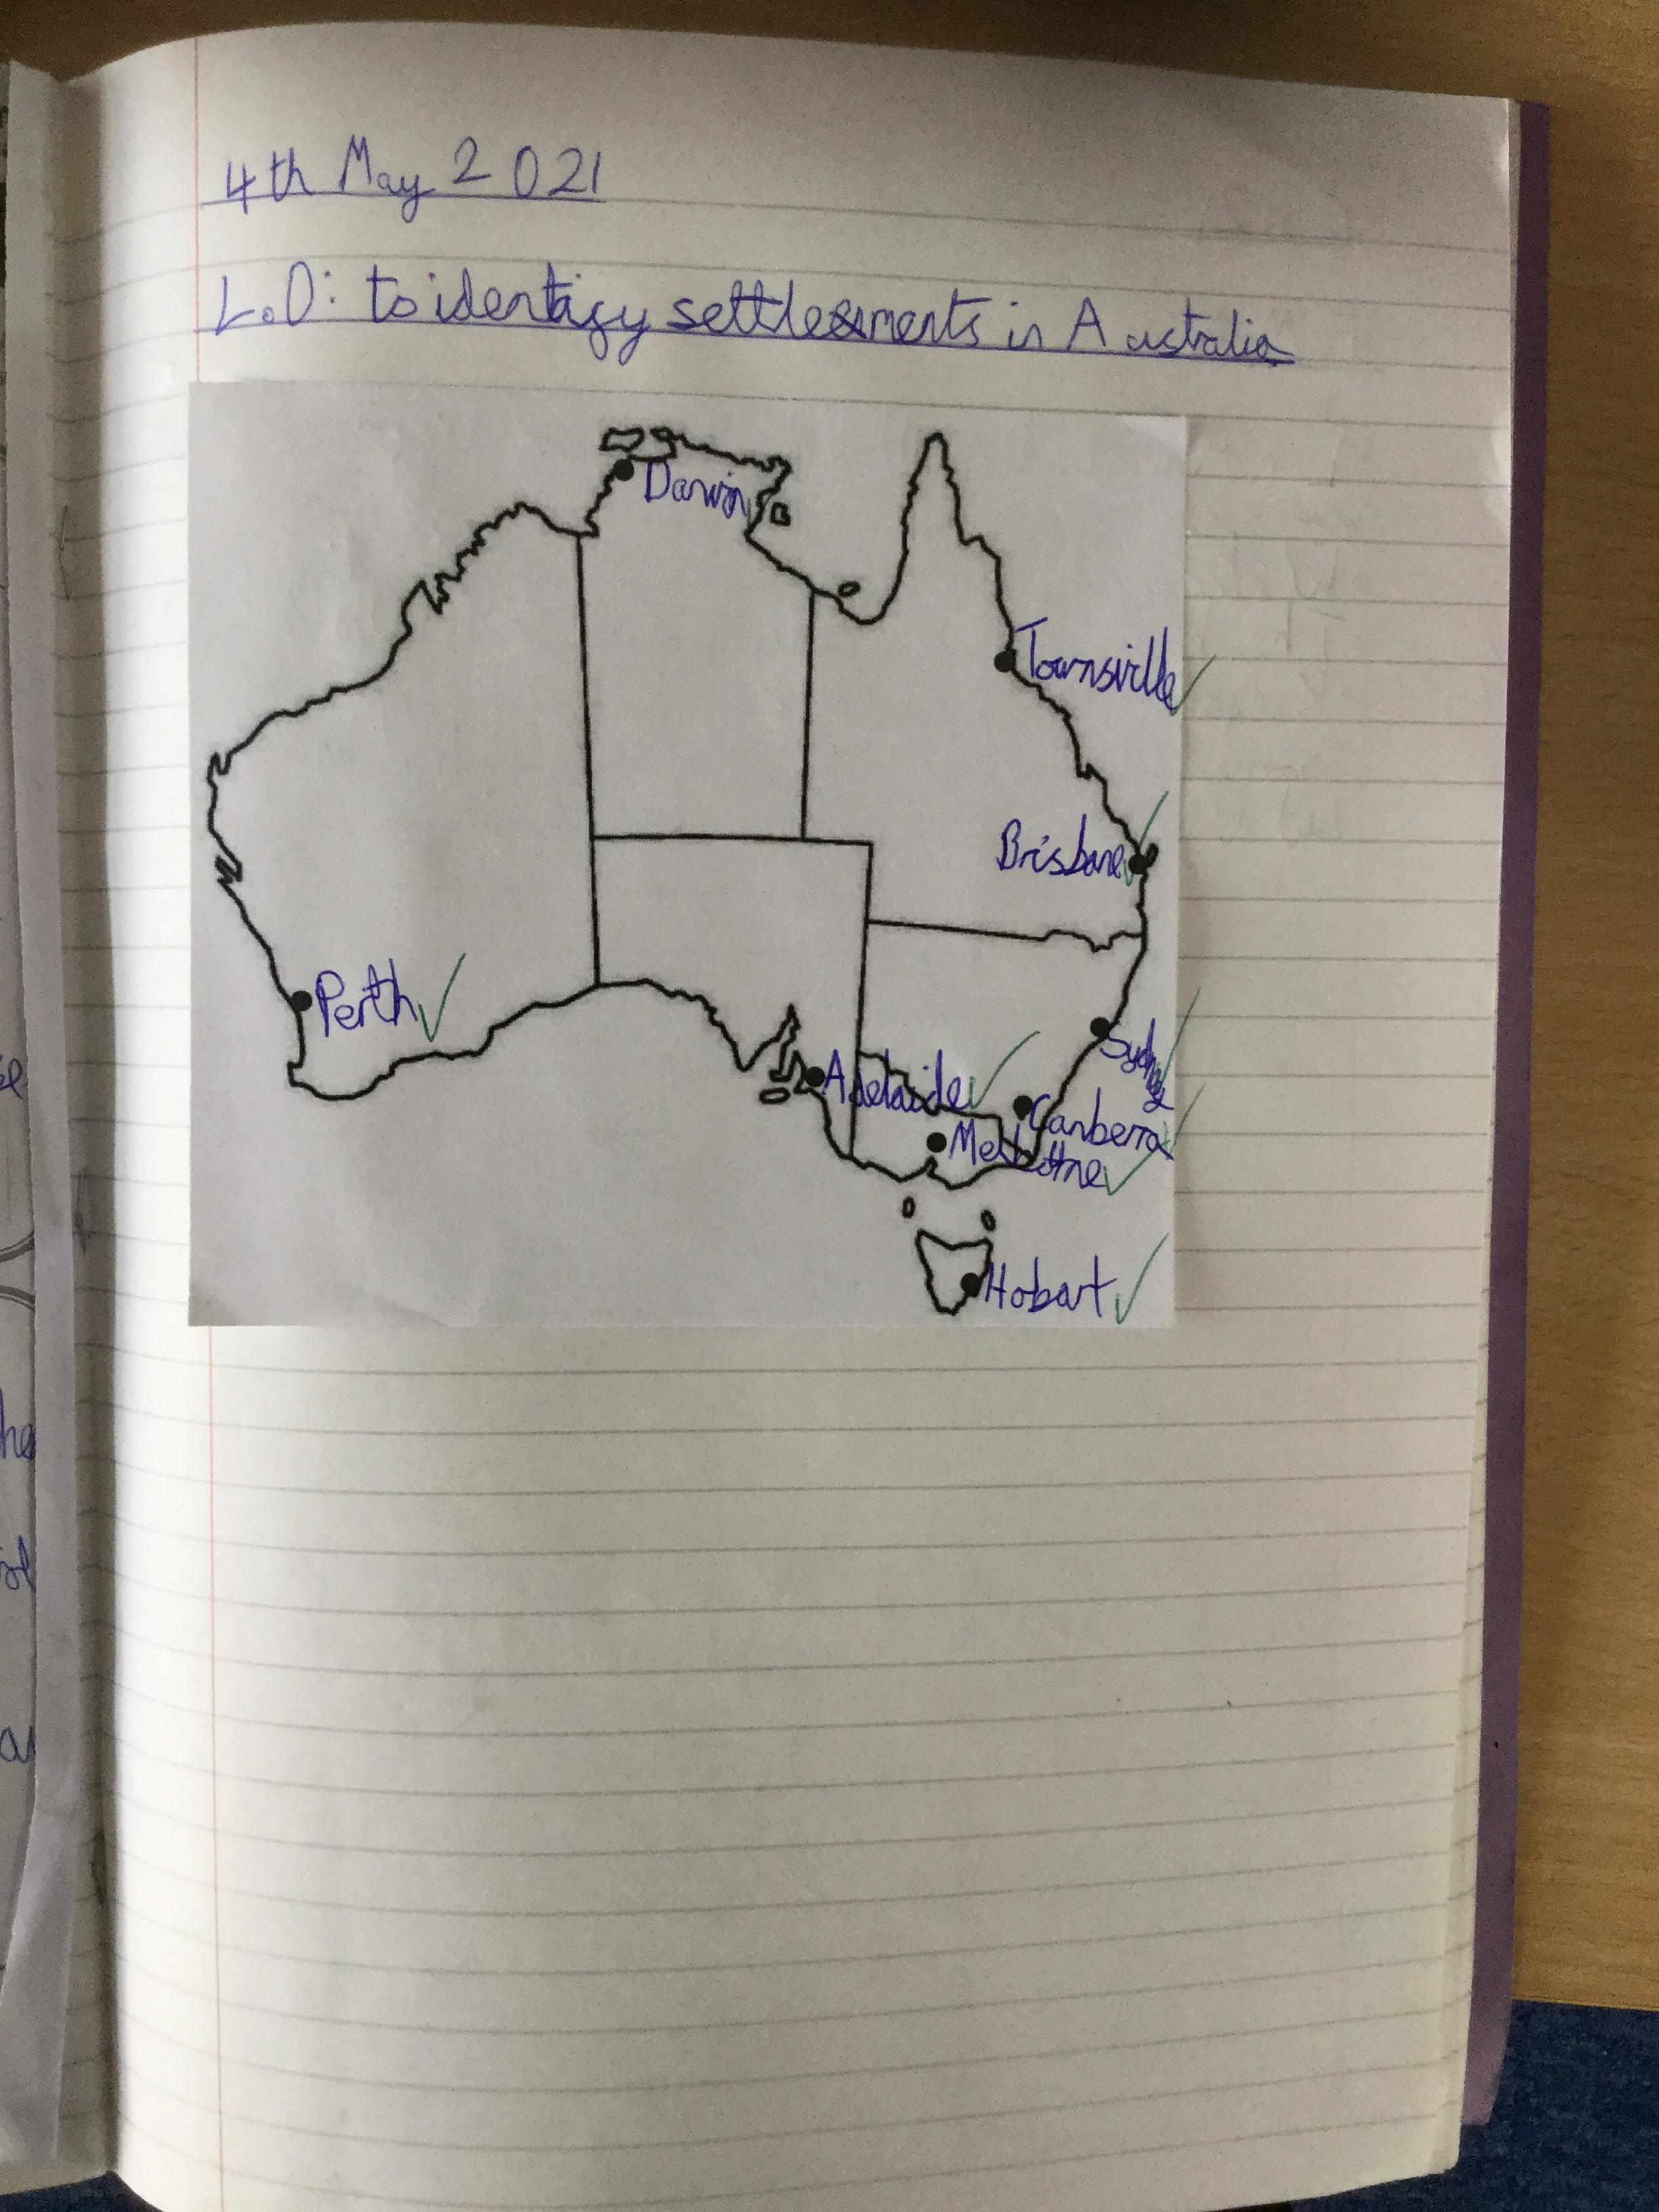 4th May 2021
L.O: to identify settlements in Australia
Darwin
Townsville
Brisbane
Perth
Sydney
Adelaide
Canberra
Melbourne
Hobart